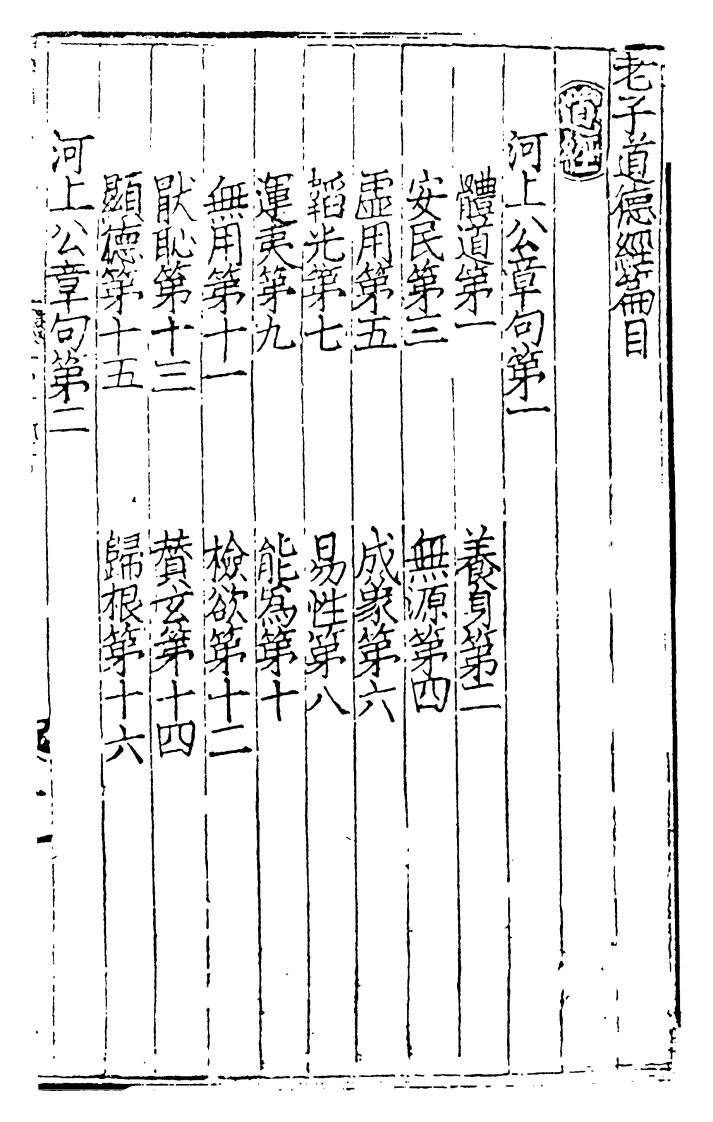 老子道德經篇目
道經
河上公章句第一
體道第一　養身第二
安民第三　無源第四
虛用第五　成象第六
韜光第七　易性第八
運夷第九　能為第十
無用第十一　檢欲第十二
猒恥第十三　賛玄第十四
顯德第十五　歸根第十六
河上公章句第二